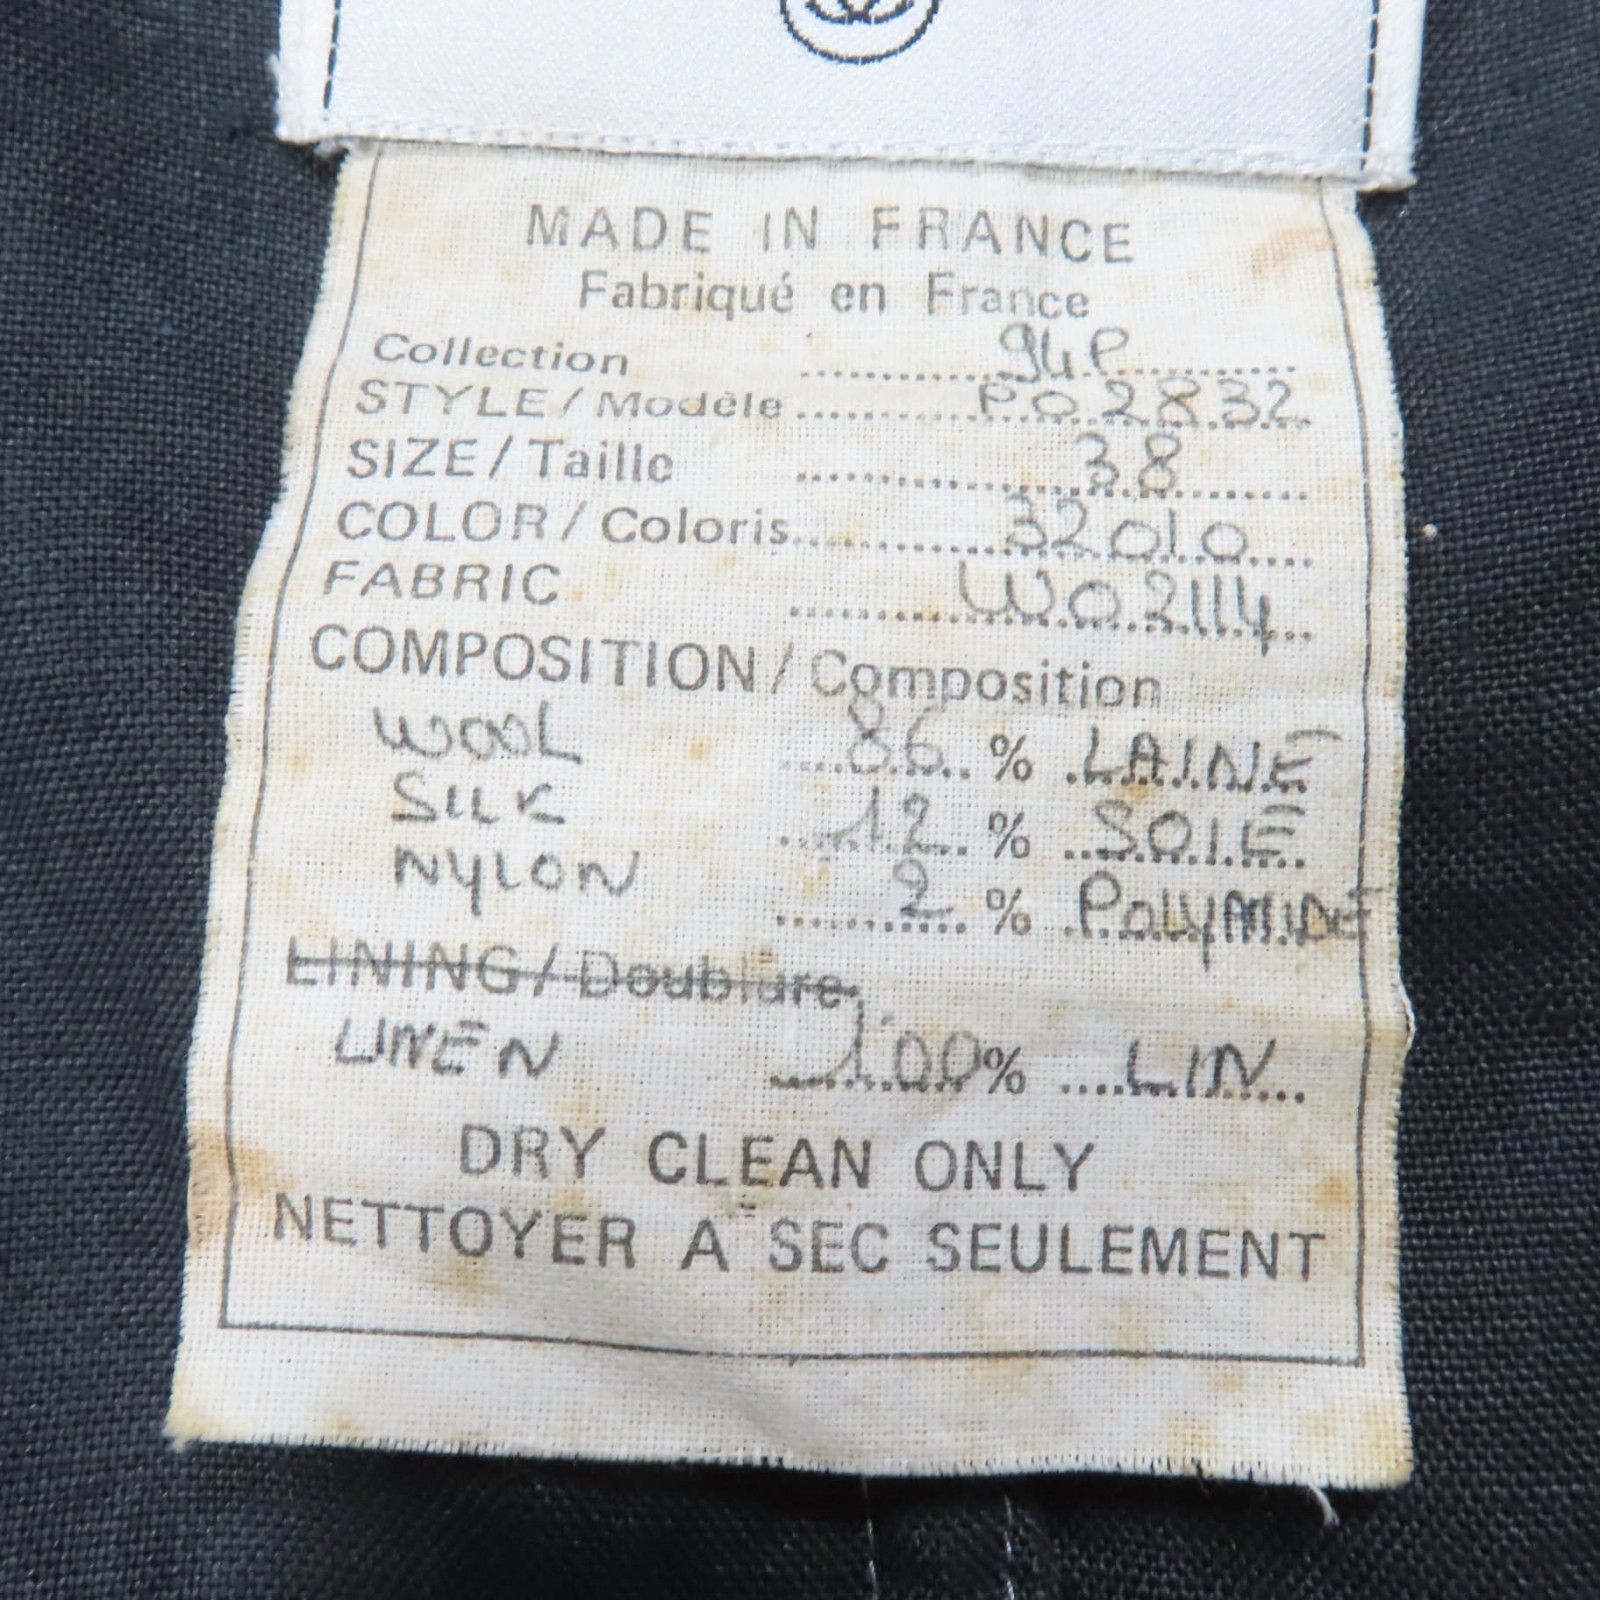 MADE IN FRANCE
Fabriqué en France
Collection 94P
STYLE / Modèle P02832
SIZE / Taille 38
COLOR / Coloris 32010
FABRIC W02114
COMPOSITION / Composition
WOOL 86 % LAINE
SILK 12 % SOIE
NYLON 2 % POLYMIDE
LINING / Doublure
LINEN 100 % LIN
DRY CLEAN ONLY
NETTOYER A SEC SEULEMENT